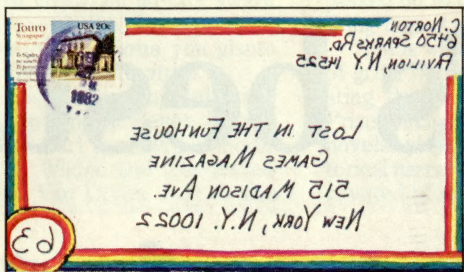 Touro
Synagogue
USA 20c
1982
C. NORTON
6450 SPARKS RD.
PAVILION, N.Y. 14525
LOST IN THE FUNHOUSE
GAMES MAGAZINE
515 MADISON AVE.
NEW YORK, N.Y. 10022
63